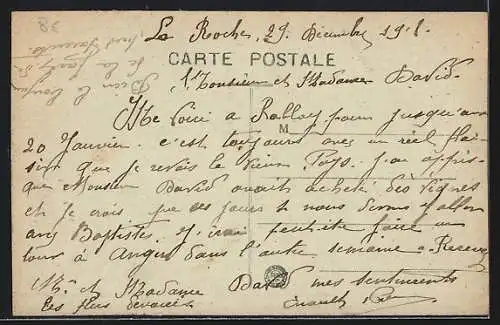 La Roche, 29 Décembre 191
CARTE POSTALE
Monsieur et Madame David
Me voici à Rablay pour jusqu'au
M
20 Janvier. c'est toujours avec un réel plai-
sir que je revois le vieux Pays. j'ai appris
que Monsieur David avait acheté des vignes
et je crois que ces jours nous irons
aux Baptistes. J'irai peut-être faire un
tour à Angers dans l'autre semaine. Recevez
Mr et Madame David mes sentiments
les plus dévoués